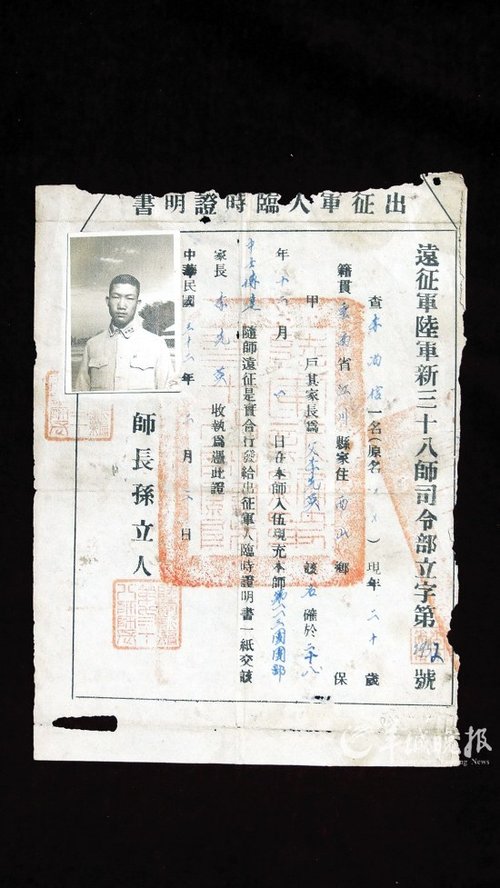 出征軍人臨時證明書
遠征軍陸軍新三十八師司令部立字第 號
查李 信一名(原名 )現年二十歲
籍貫雲南省 川縣家住西 鄉 保
甲 戶其家長爲父李光英 該名確於二十八
年十二月 日在本師入伍現充本師第一一三團團部
中士 隨師遠征是實合行發給出征軍人臨時證明書一紙交該
家長李光英 收執爲憑此證
中華民國三十二年 月 日
師長孫立人
羊城晚报
ng News